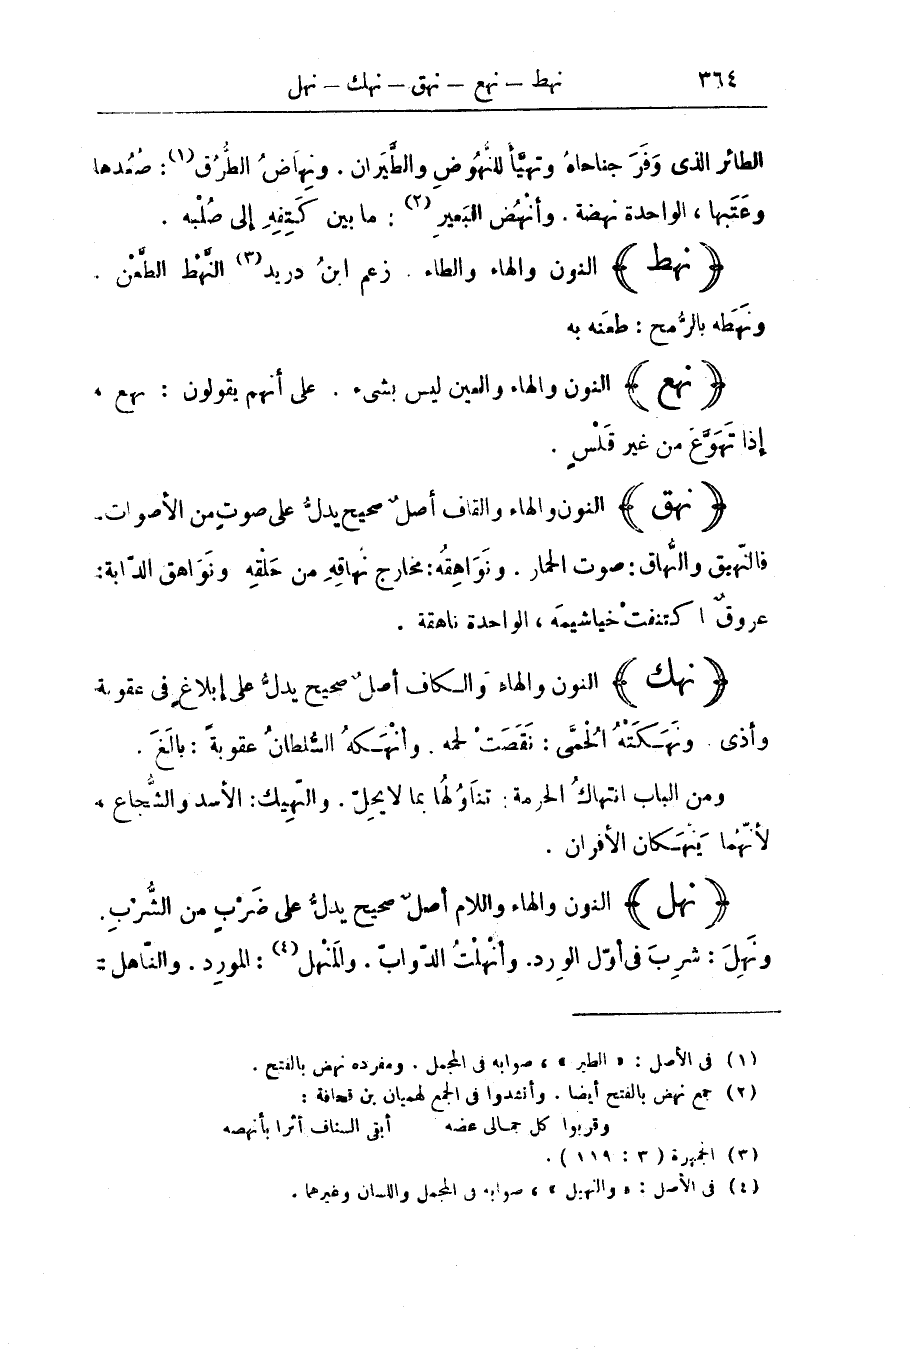 ٣٦٤ نهط – نهع – نهق – نهك – نهل
الطائر الذى وَفَرَ جناحاهُ وتهيَّأ للنُّهُوضِ والطَّيَران . ونِهاَضُ الطُّرُق(١): صُعُدها
وعَتَبها ، الواحدة نهضة . وأَنْهُض البَعير(٢) : ما بين كَتِفِهِ إلى صُلْبه .
﴿ نهط ﴾ النون والهاء والطاء . زعم ابنُ دريد(٣) النَّهْط الطَّعْن .
ونَهَطه بالرُّمح : طعَنه به
﴿ نهع ﴾ النون والهاء والعين ليس بشىء . على أنهم يقولون : نهع ،
إذا تَهَوَّعَ من غير قَلْسٍ .
﴿ نهق ﴾ النون والهاء والقاف أصلٌ صحيح يدلُّ على صوتٍ من الأصوات .
فالنَّهيق والنُّهاق : صوت الحمار . ونَوَاهِقُه : مخارج نُهاقِهِ من حَلْقِه ونَوَاهق الدّابة :
عروقٌ اكتنفتْ خياشيمَه ، الواحدة ناهقة .
﴿ نهك ﴾ النون والهاء والكاف أصلٌ صحيح يدلُّ على إبلاغٍ فى عقوبة
وأذى . ونَهَكَتْهُ الْحُمَّى : نَقَصَتْ لحمه . وأنْهَكهُ السُّلطانُ عقوبةً : بالَغَ .
ومن الباب انتهاكُ الحرمة : تناوُلُها بما لا يحلّ . والنَّهيك : الأسد والشُّجاع ،
لأنّهُما يَنْهَكان الأقران .
﴿ نهل ﴾ النون والهاء واللام أصلٌ صحيح يدلُّ على ضَرْبٍ من الشُّرْبِ .
ونَهِلَ : شربَ فى أوّل الوِرد . وأنْهلْتُ الدّوابّ . والمَنْهل(٤) : المورِد . والنّاهل :
(١) فى الأصل : « الطير » ، صوابه فى المجمل . ومفرده نهض بالفتح .
(٢) جمع نهض بالفتح أيضا . وأنشدوا فى الجمع لهميان بن قحافة :
وقربوا كل جمالى عضه أبقى السناف أثرا بأنهضه
(٣) الجمهرة ( ٣ : ١١٩ ) .
(٤) فى الأصل : « والنهيل » ، صوابه فى المجمل واللسان وغيرهما .